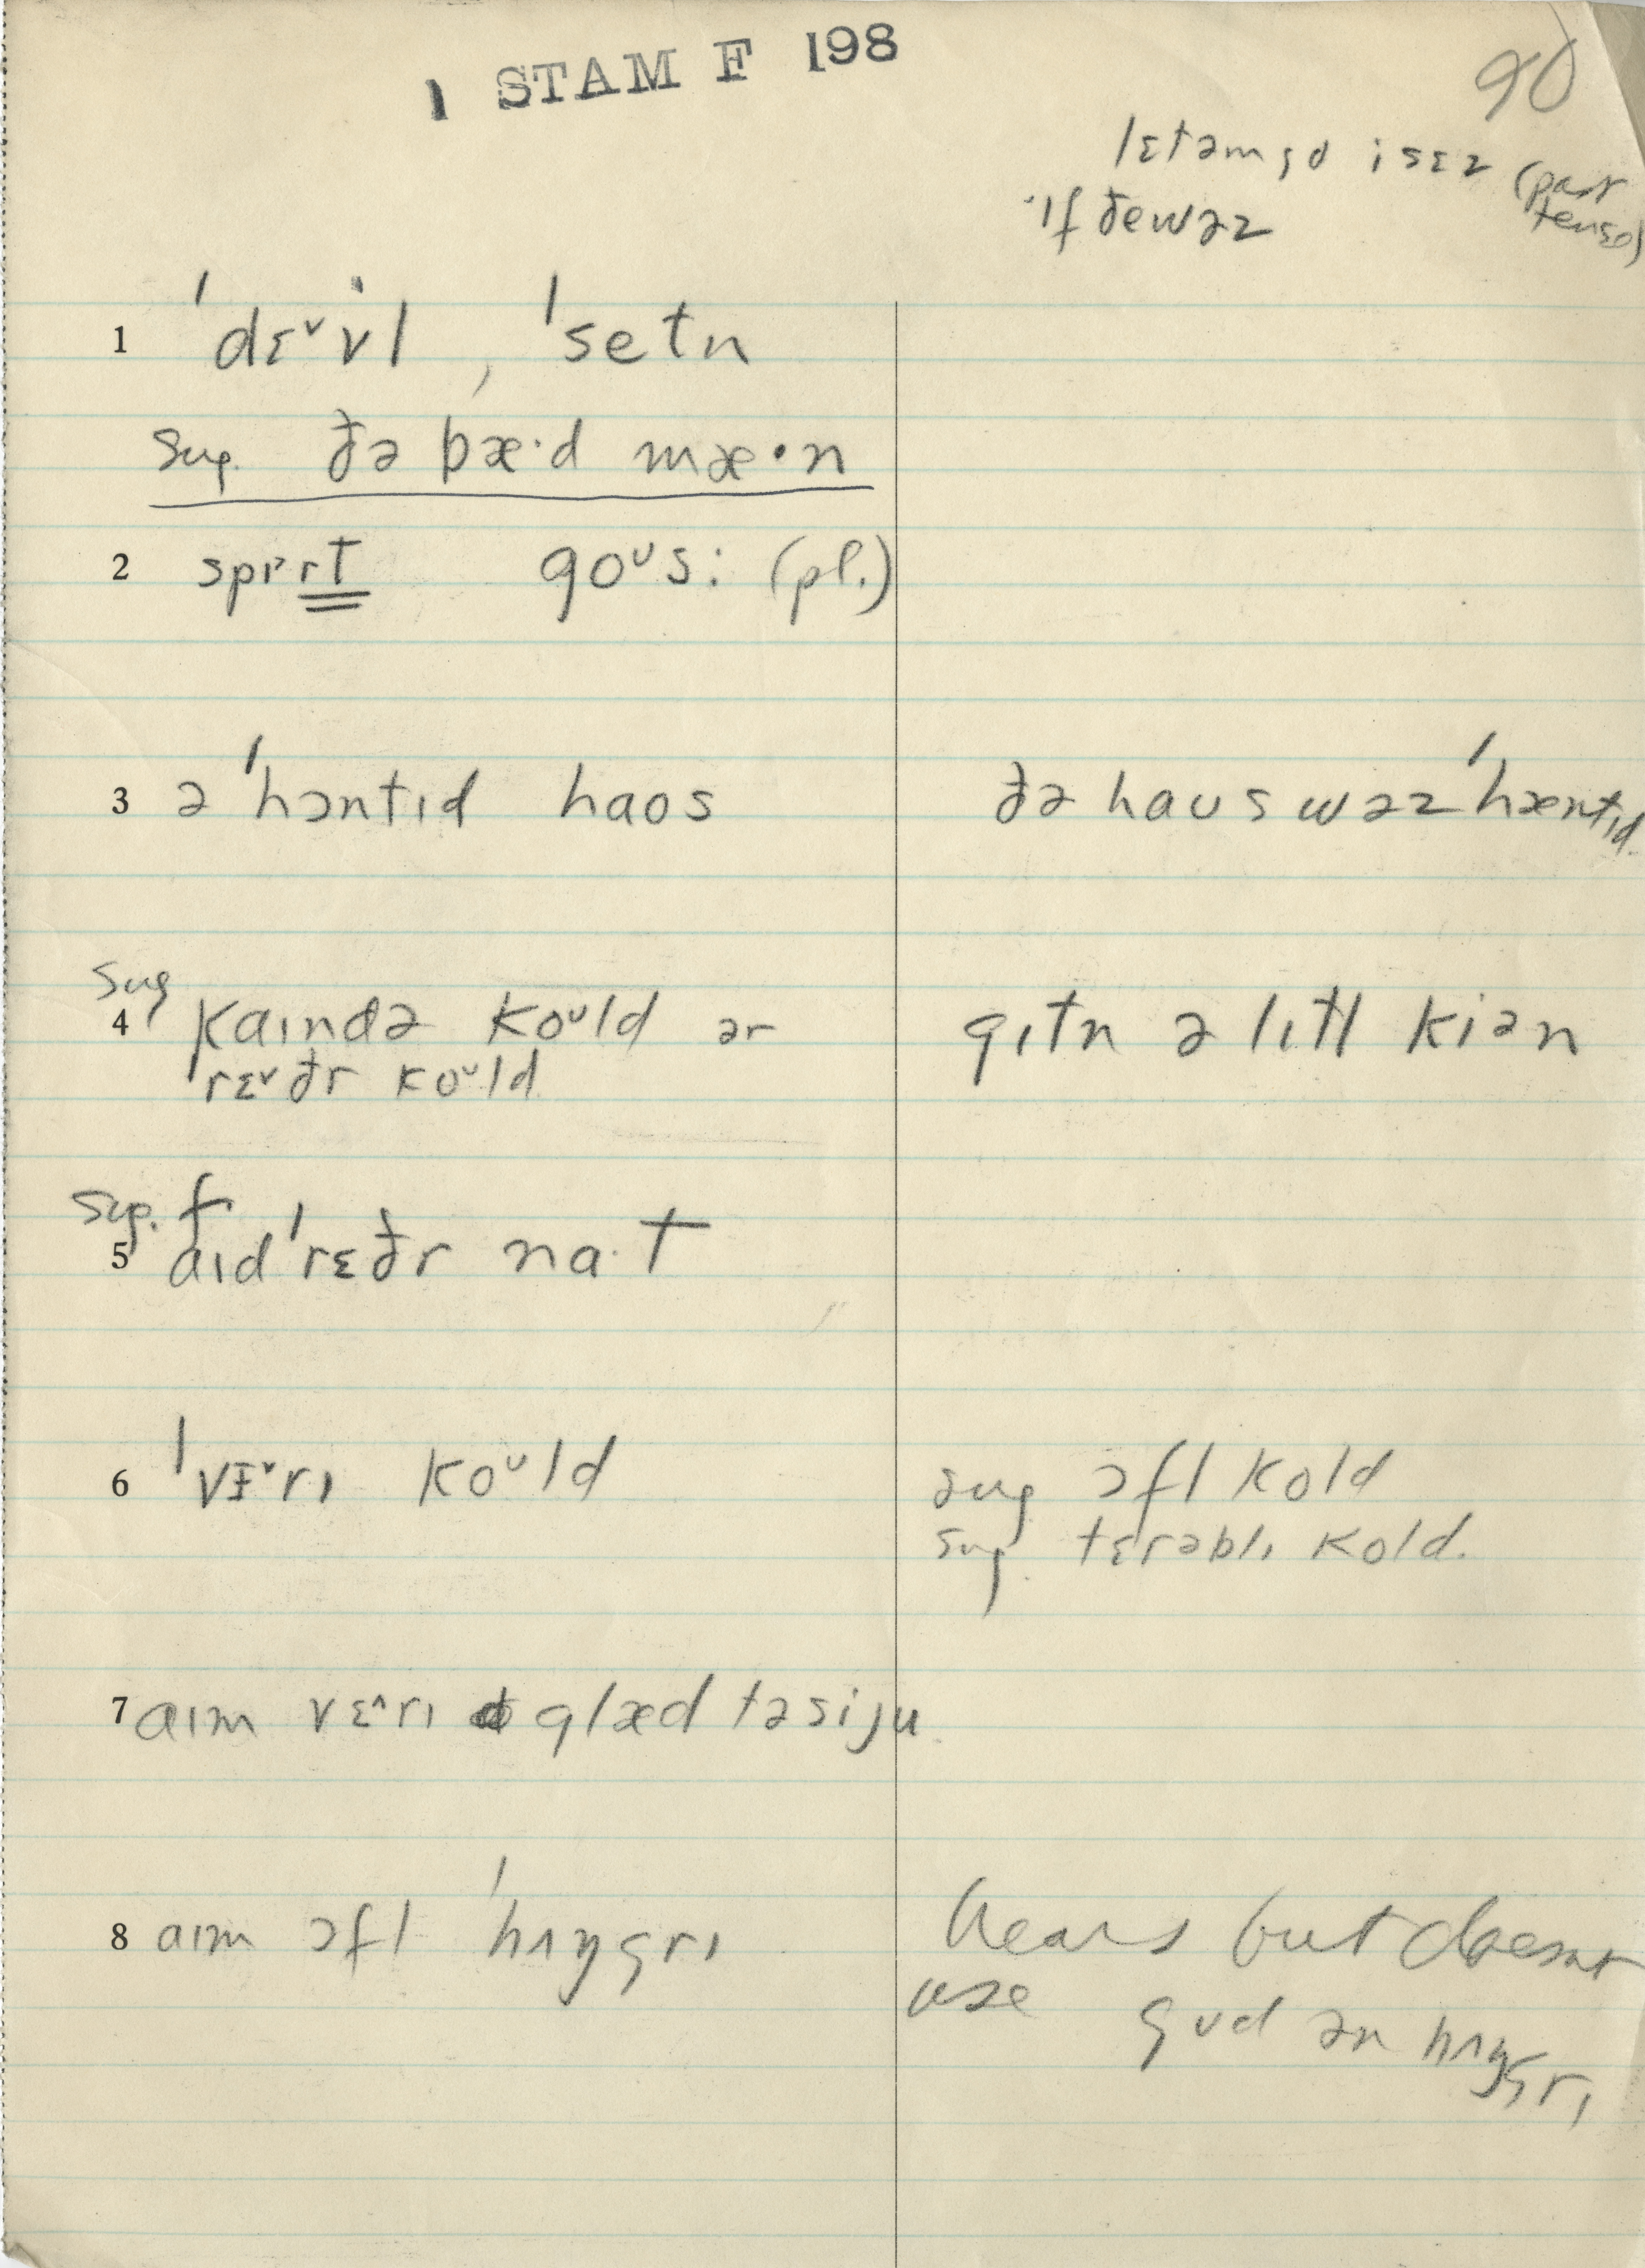 1 STAM F 198
90
lɛtəmgo i sɛz (past
tense)
ˈɪf ðewəz
1 ˈdɛ˅vɨl, ˈsetn
Sug. ðə bæ·d mæ·n
2 spɪ˒rɪt goᴜs: (pl.)
3 ə ˈhɔntɪd haʊs ðə haʊs wəz ˈhæntɪd
Sug
4 kaɪndə koᴜld ər gɪtn ə lɪtl kiən
ˈrɛ˅ðr koᴜld
Sug. f
5 aɪd ˈrɛðr na·t
6 ˈvɛ˅rɪ koᴜld sug ɔfl kold
sug. tɛrəblɪ kold.
7 aɪm vɛ˄rɪ glæd təsiju
8 aɪm ɔfl ˈhʌŋgrɪ hears but doesnt
use gʊd ən hʌŋgrɪ